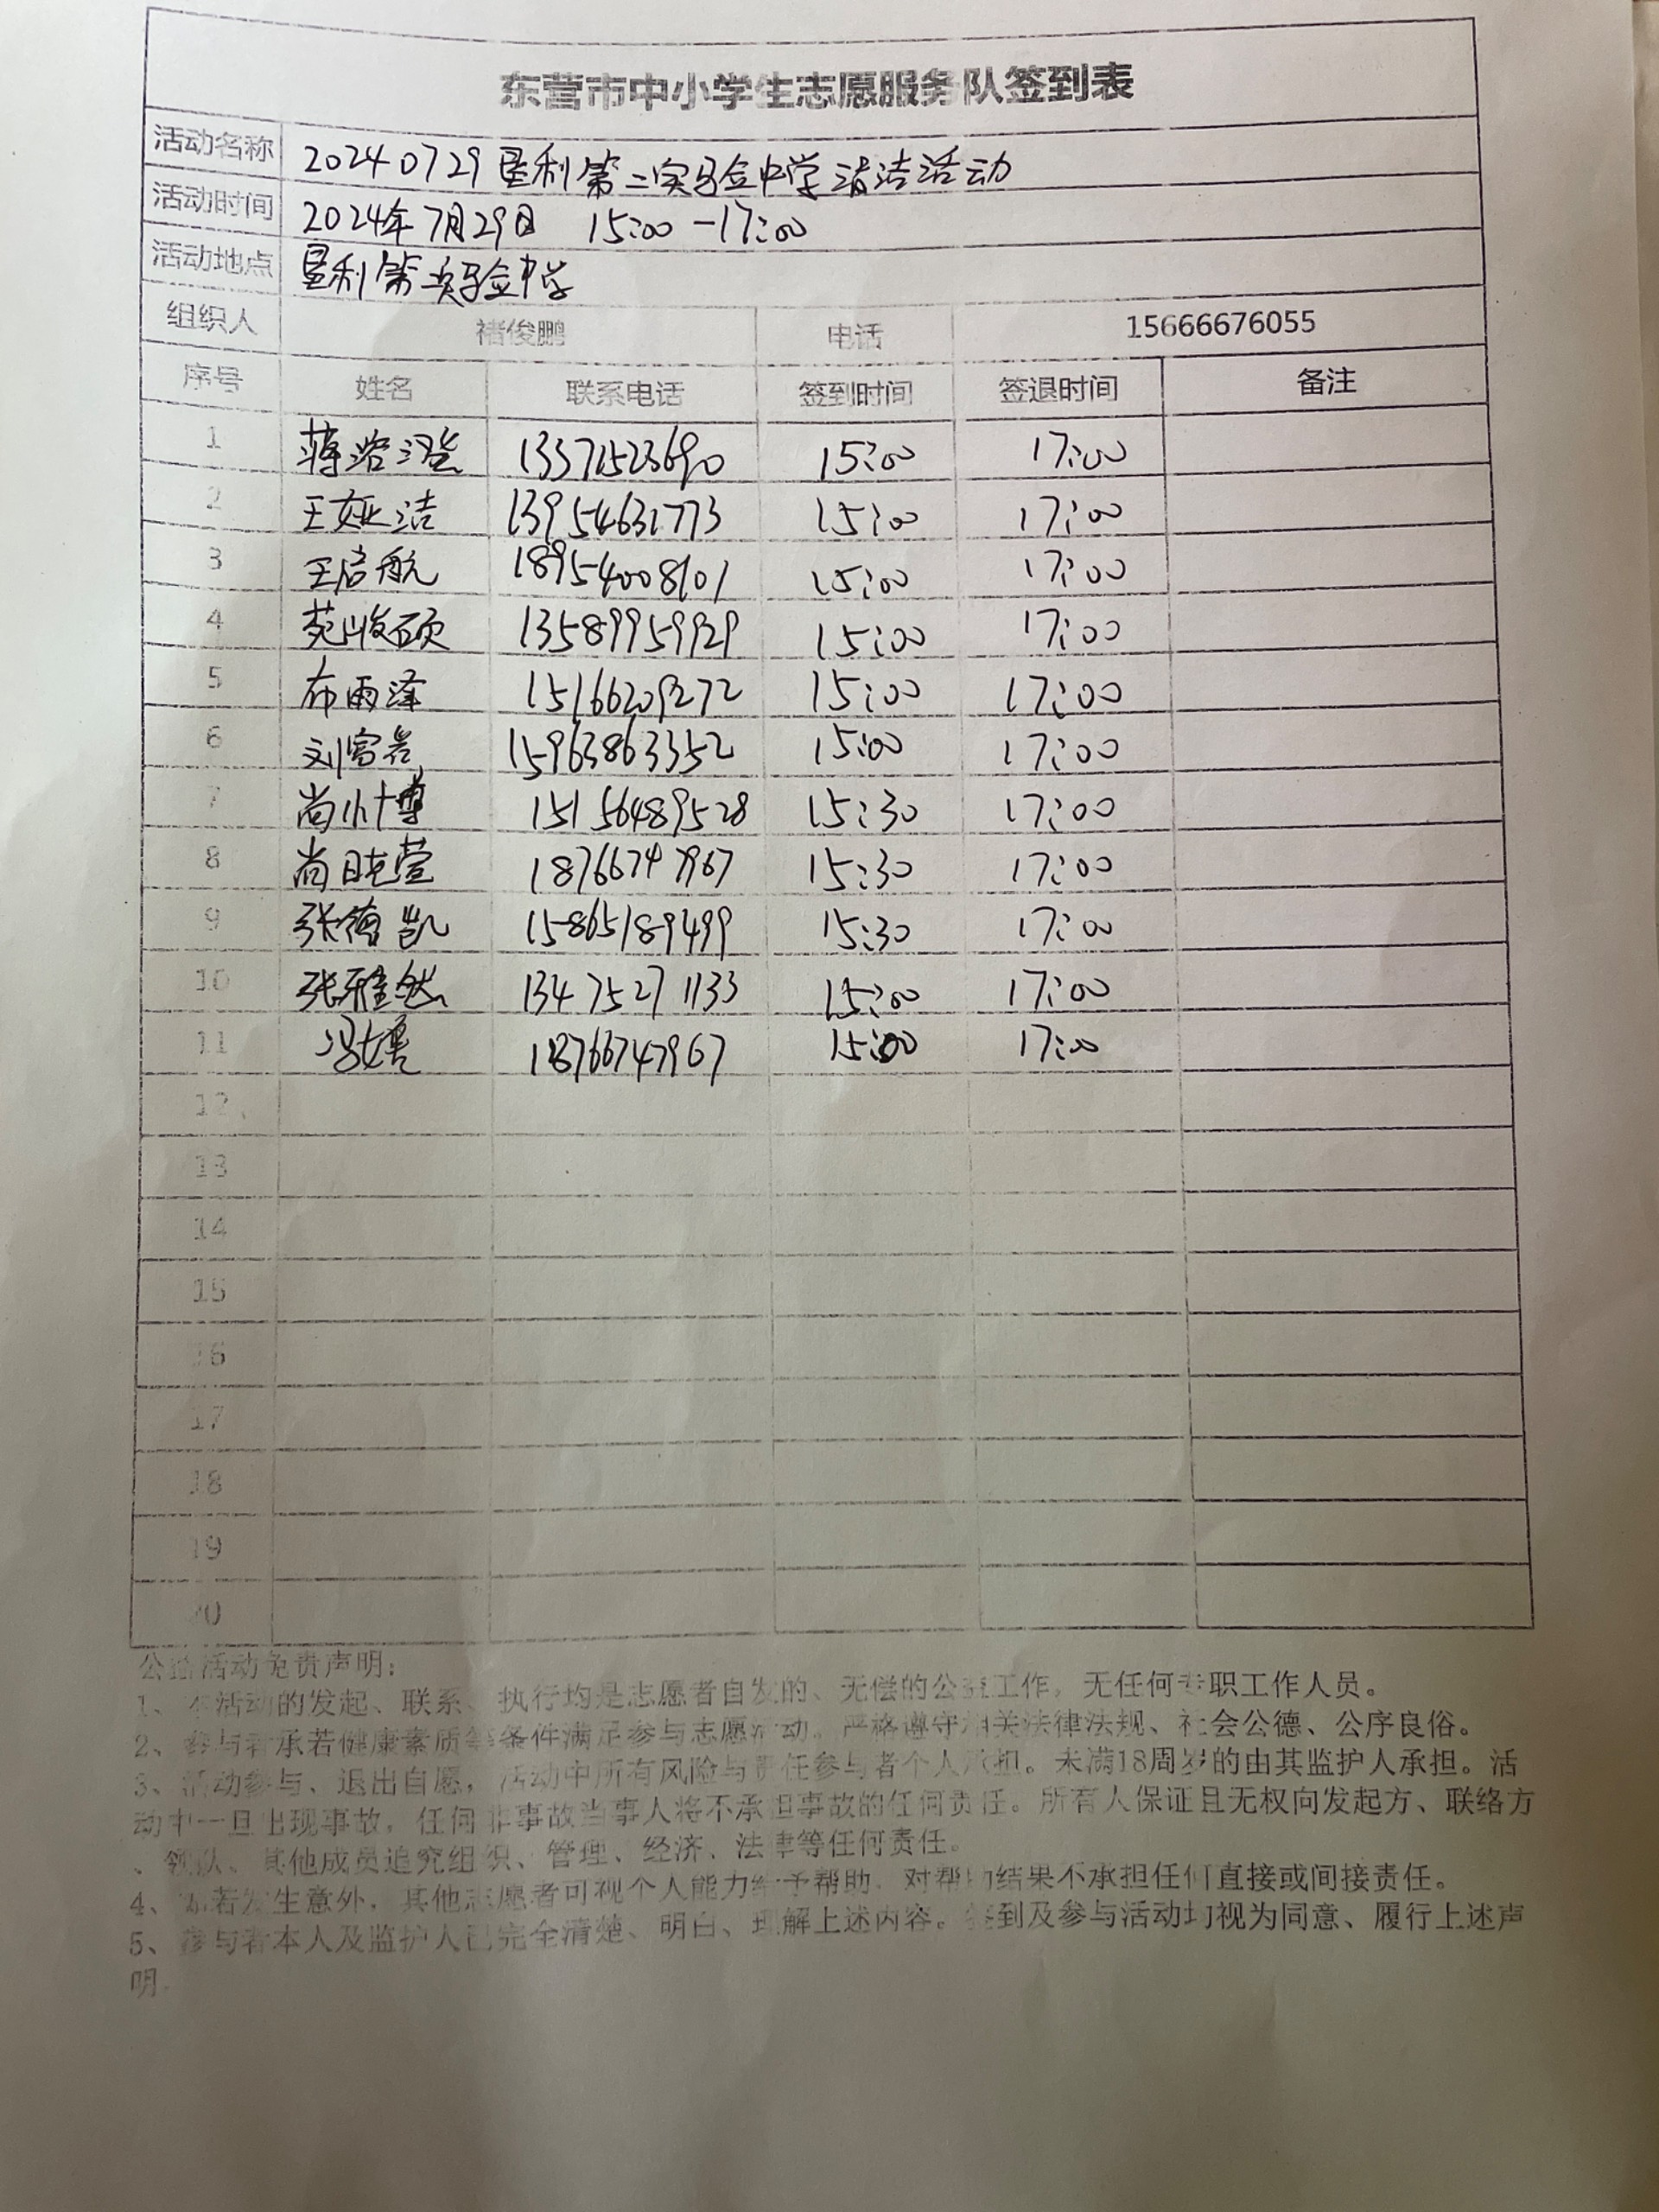 东营市中小学生志愿服务队签到表
活动名称 20240729垦利第二实验中学清洁活动
活动时间 2024年7月29日 15:00-17:00
活动地点 垦利第二实验中学
组织人 褚俊鹏 电话 15666676055
序号 姓名 联系电话 签到时间 签退时间 备注
1 蒋洺澄 13371523690 15:00 17:00
2 王娅洁 13954631773 15:00 17:00
3 王启航 18954008101 15:00 17:00
4 苑峻硕 13589959929 15:00 17:00
5 布雨泽 15166209272 15:00 17:00
6 刘富 15963863352 15:00 17:00
7 尚小博 15156489528 15:30 17:00
8 尚晓萱 18766747967 15:30 17:00
9 张德凯 15865189499 15:30 17:00
10 张雅然 13475271133 15:00 17:00
11 冯媛 18766747967 15:00 17:00
12
13
14
15
16
17
18
19
20
公益活动免责声明：
1、本活动的发起、联系、执行均是志愿者自发的、无偿的公益工作，无任何专职工作人员。
2、参与者承若健康素质等条件满足参与志愿活动。严格遵守相关法律法规、社会公德、公序良俗。
3、活动参与、退出自愿，活动中所有风险与责任参与者个人承担。未满18周岁的由其监护人承担。活
动中一旦出现事故，任何非事故当事人将不承担事故的任何责任。所有人保证且无权向发起方、联络方
、领队、其他成员追究组织、管理、经济、法律等任何责任。
4、如若发生意外，其他志愿者可视个人能力给予帮助，对帮助结果不承担任何直接或间接责任。
5、参与者本人及监护人已完全清楚、明白、理解上述内容。签到及参与活动均视为同意、履行上述声
明。